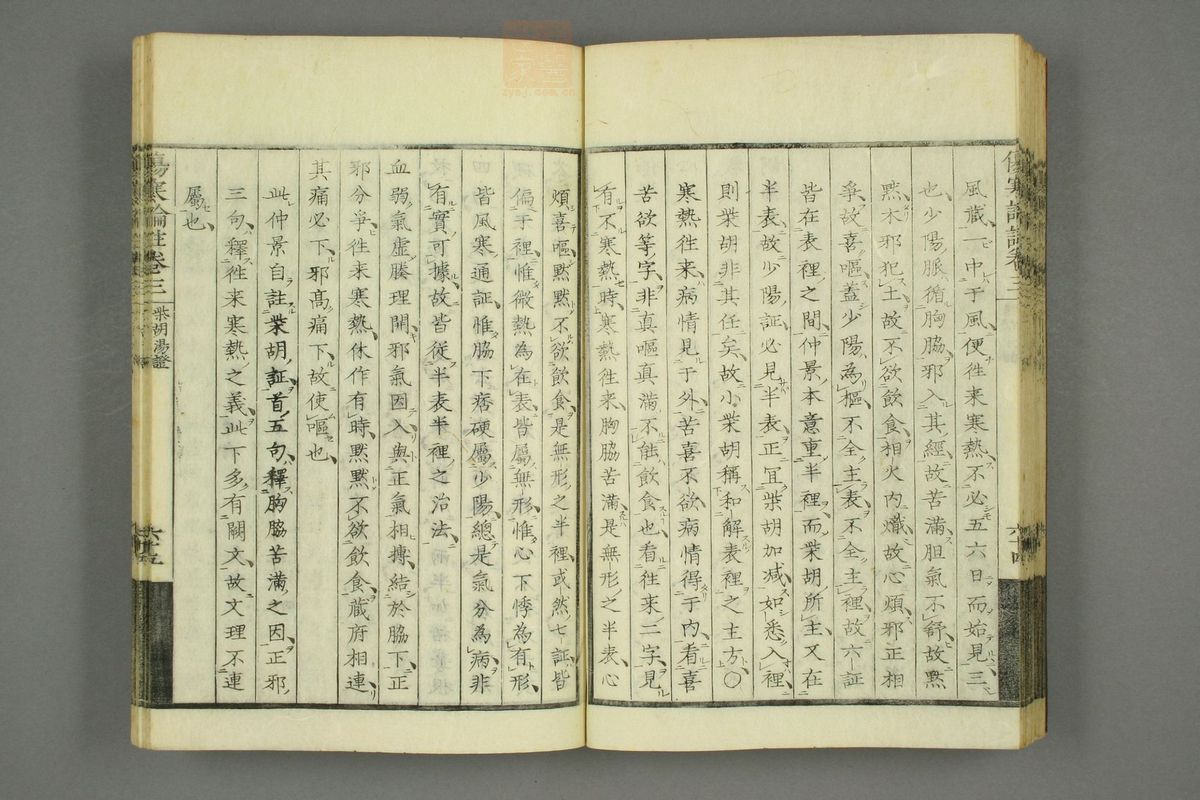 風蔵一中于風便徃来寒熱不必五六日而始見三
也少陽脈循胸脇邪入其經故苦滿胆氣不舒故黙
黙木邪犯土故不欲飲食相火内熾故心煩邪正相
爭故喜嘔盖少陽為樞不全主表不全主裡故六証
皆在表裡之間仲景本意重半裡而柴胡所主又在
半表故少陽証必見半表正宜柴胡加减如悉入裡
則柴胡非其任矣故小柴胡稱和解表裡之主方〇
寒熱徃来病情見于外苦喜不欲病情得于内看喜
苦欲等字非真嘔真滿不能飲食也看徃来二字見
有不寒熱時寒熱徃来胸脇苦滿是無形之半表心
煩喜嘔黙黙不欲飲食是無形之半裡或然七証皆
偏于裡惟微熱為在表皆屬無形惟心下悸為有形
皆風寒通証惟脇下痞硬屬少陽總是氣分為病非
有實可據故皆従半表半裡之治法
血弱氣虛腠理開邪氣因入與正氣相摶結於脇下正
邪分爭徃来寒熱休作有時黙黙不欲飲食藏府相連
其痛必下邪髙痛下故使嘔也
此仲景自註柴胡証首五句釋胸脇苦滿之因正邪
三句釋徃来寒熱之義此下多有闕文故文理不連
屬也
傷寒論註卷三
柴胡湯證
六十五
六十四